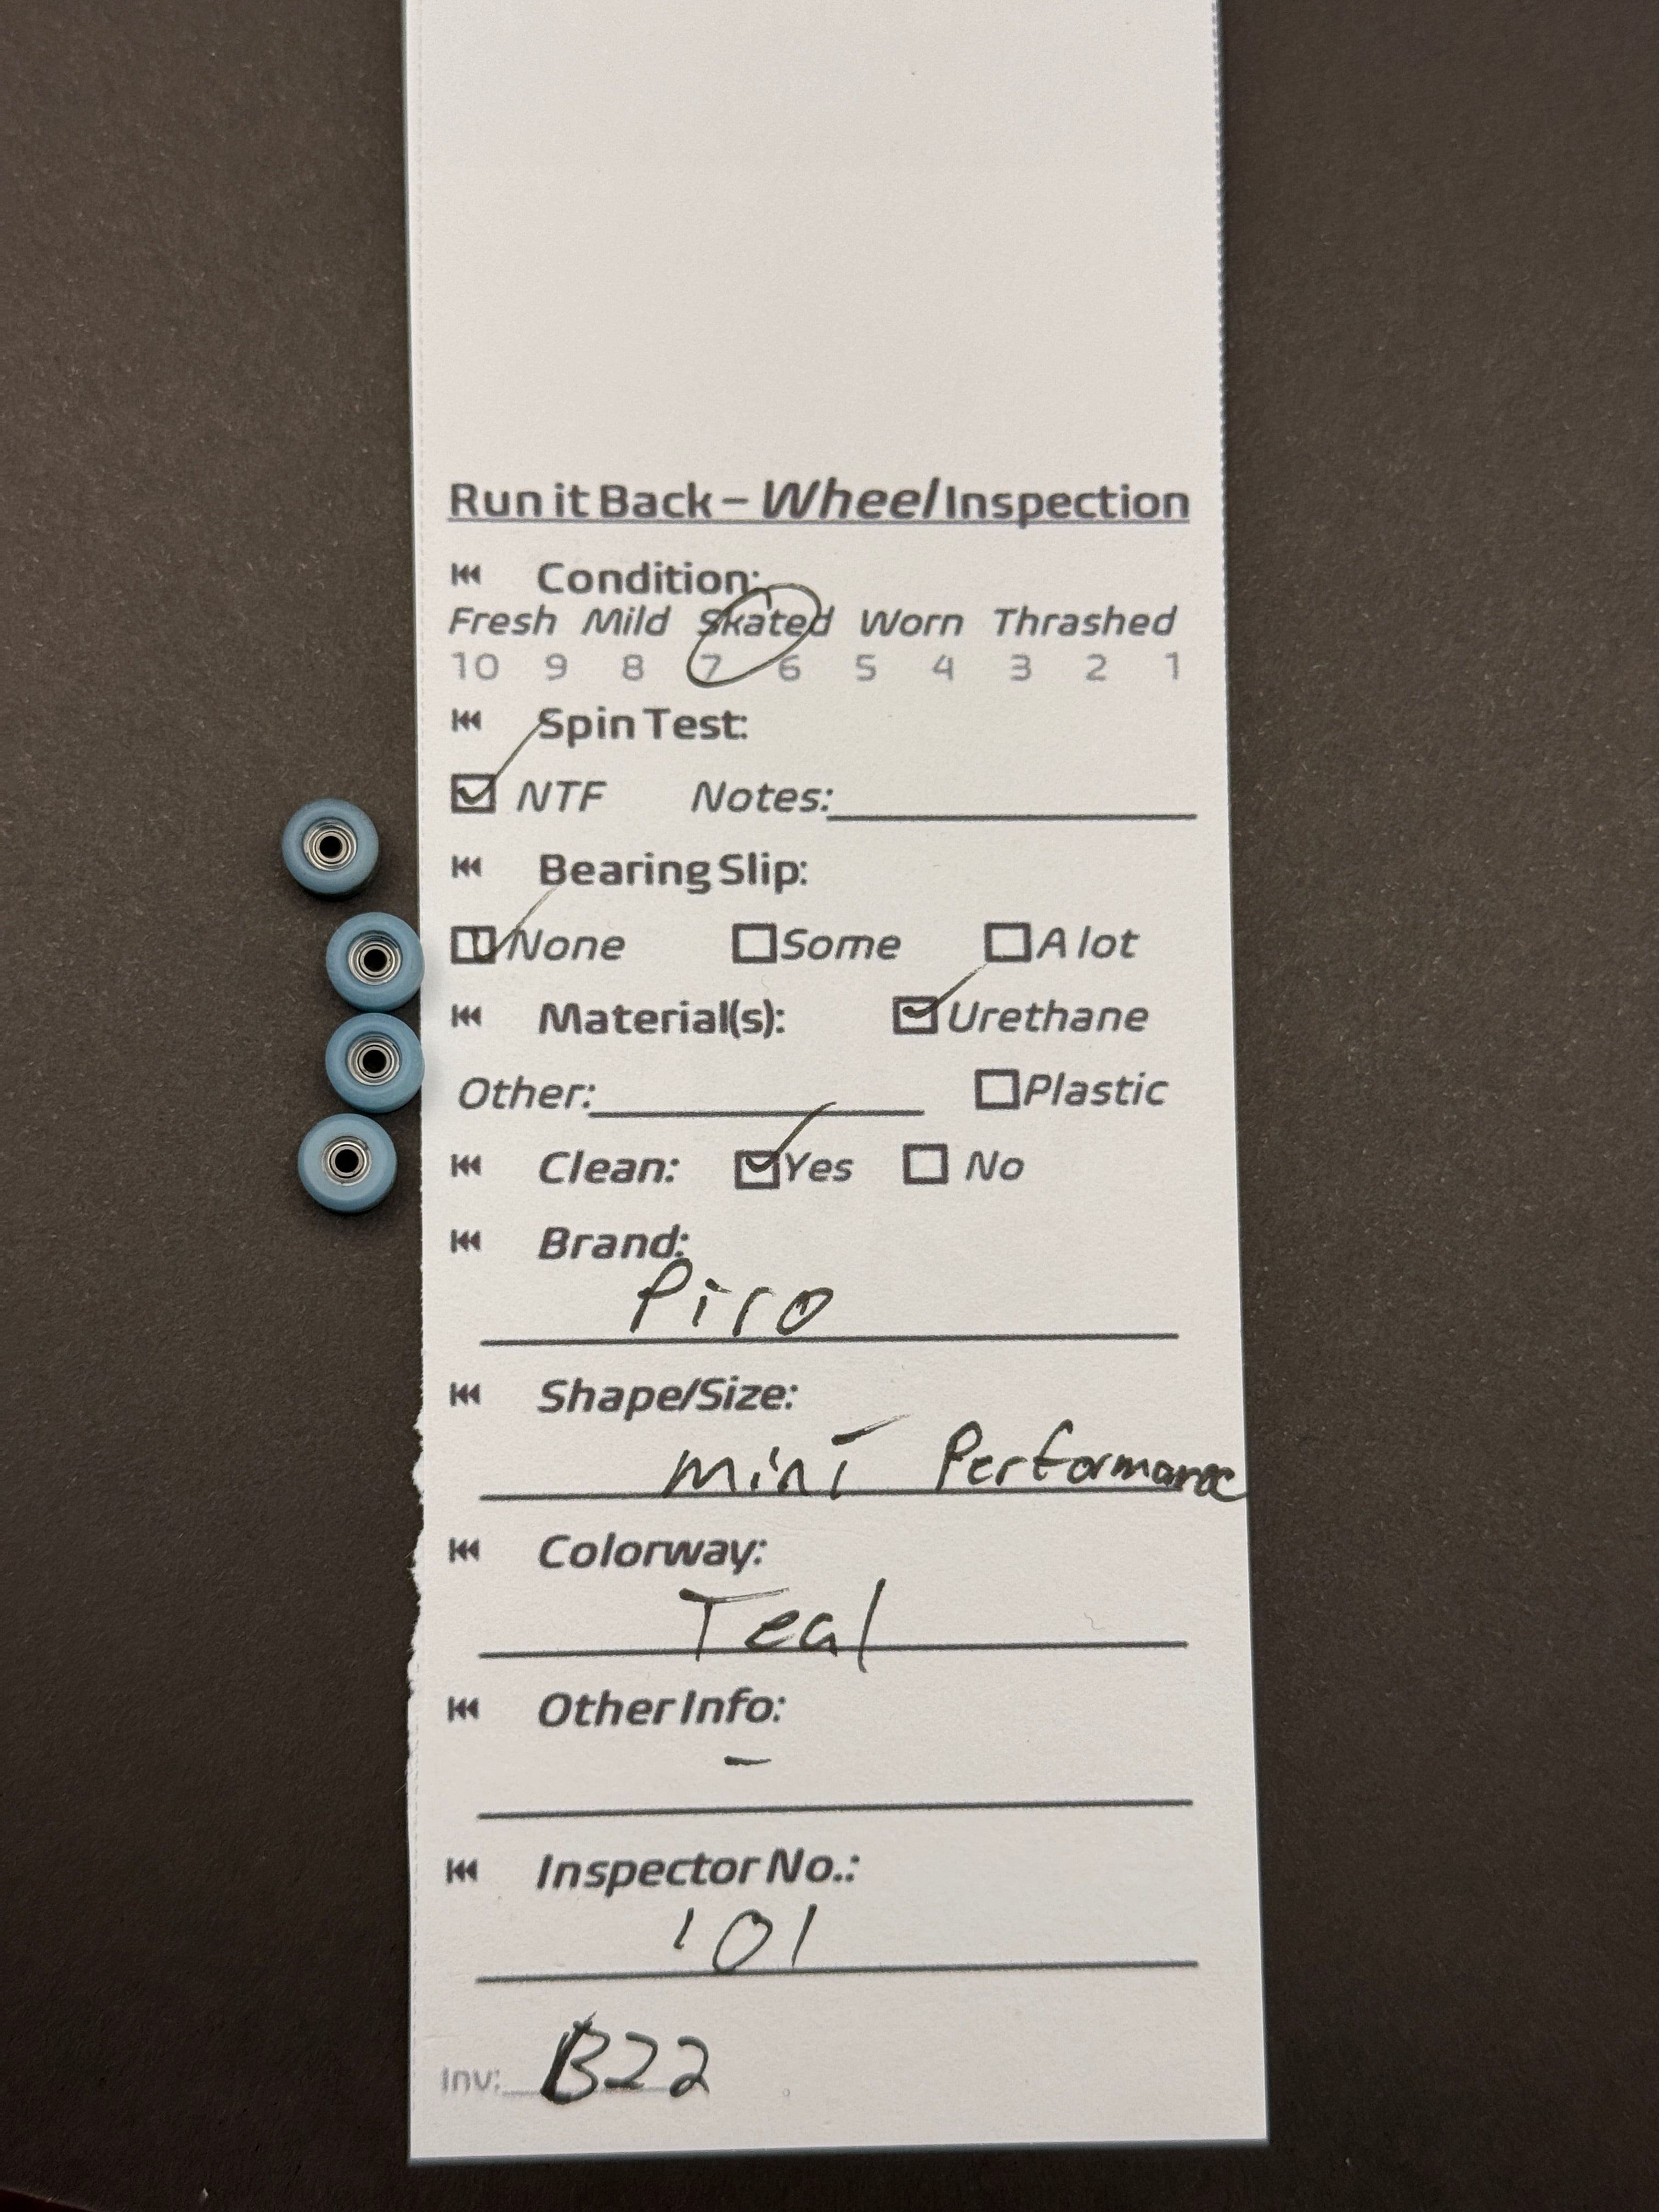 Run it Back – Wheel Inspection
Condition:
Fresh Mild Skated Worn Thrashed
10 9 8 7 6 5 4 3 2 1
Spin Test:
NTF Notes:
Bearing Slip:
None Some A lot
Material(s): Urethane
Other: Plastic
Clean: Yes No
Brand:
Piro
Shape/Size:
mini Performance
Colorway:
Teal
Other Info:
–
Inspector No.:
101
Inv: B22